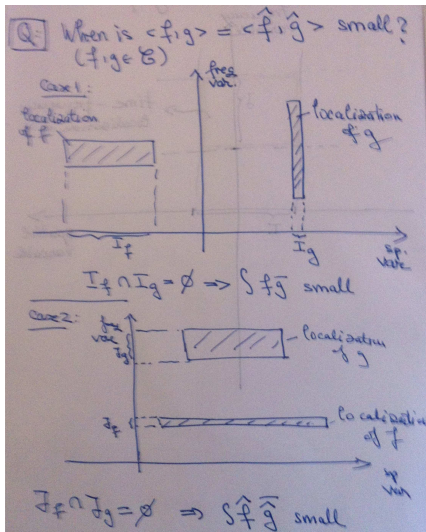 Q: When is <f,g> = <f̂,ĝ> small?
(f,g ∈ 𝒞)
Case 1:
freq
var.
localization
of f
localization
of g
I_f
I_g
sp.
var.
I_f ∩ I_g = ∅ => ∫ f ḡ small
Case 2:
freq
var
J_g
localization
of g
J_f
localization
of f
sp
var
J_f ∩ J_g = ∅ => ∫ f̂ \overline{ĝ} small